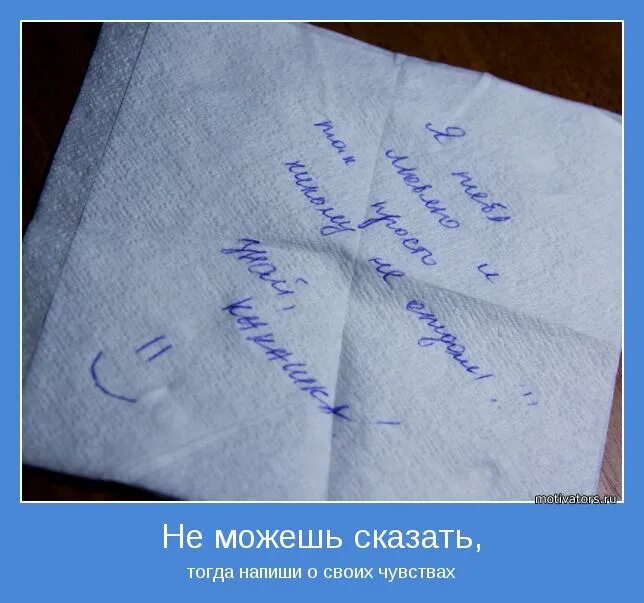 Я тебя
люблю и
так просто
никому не отдам!
Знай,
motivators.ru
Не можешь сказать,
тогда напиши о своих чувствах